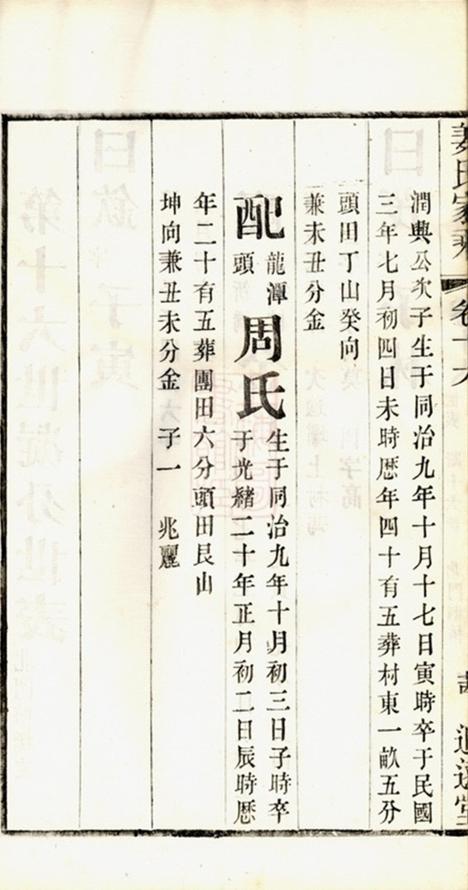 姜氏家乘
卷十六
潤典公次子生于同治九年十月十七日寅時卒于民國
三年七月初四日未時歷年四十有五葬村東一畝五分
頭田丁山癸向
兼未丑分金
配龍潭頭周氏生于同治九年十月初三日子時卒
于光緒二十年正月初二日辰時歷
年二十有五葬團田六分頭田艮山
坤向兼丑未分金 子一 兆麗